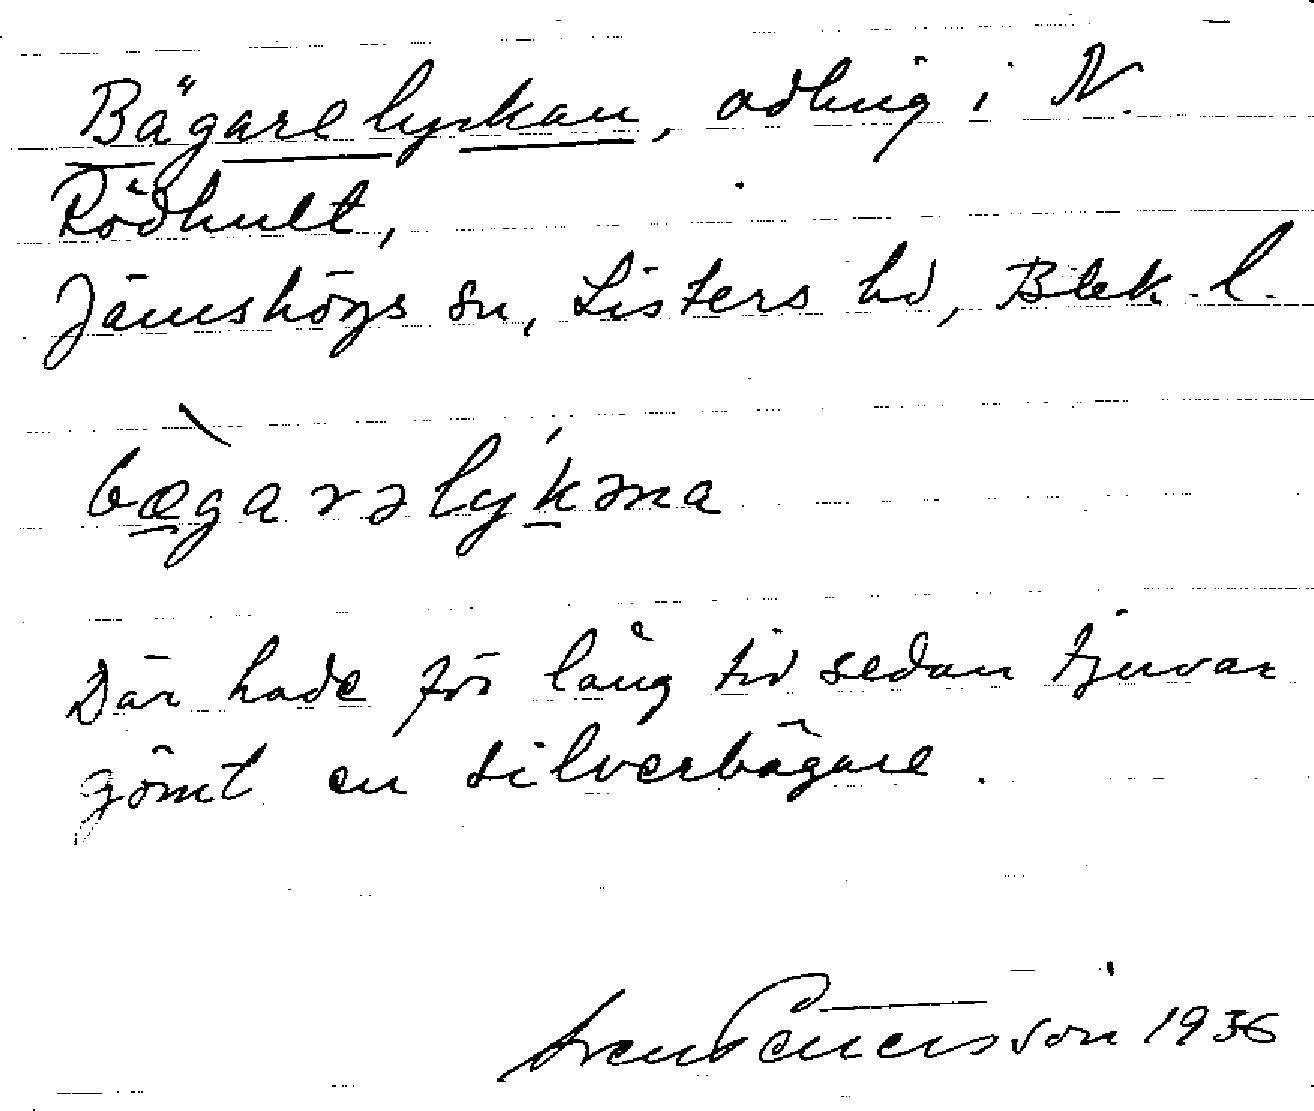 Bägarelyckan, odling i N.
Rödhult,
Jämshögs sn, Listers hd, Blek. l.
bægarəlykəna
Där hade för lång tid sedan tjuvar
gömt en silverbägare.
1936